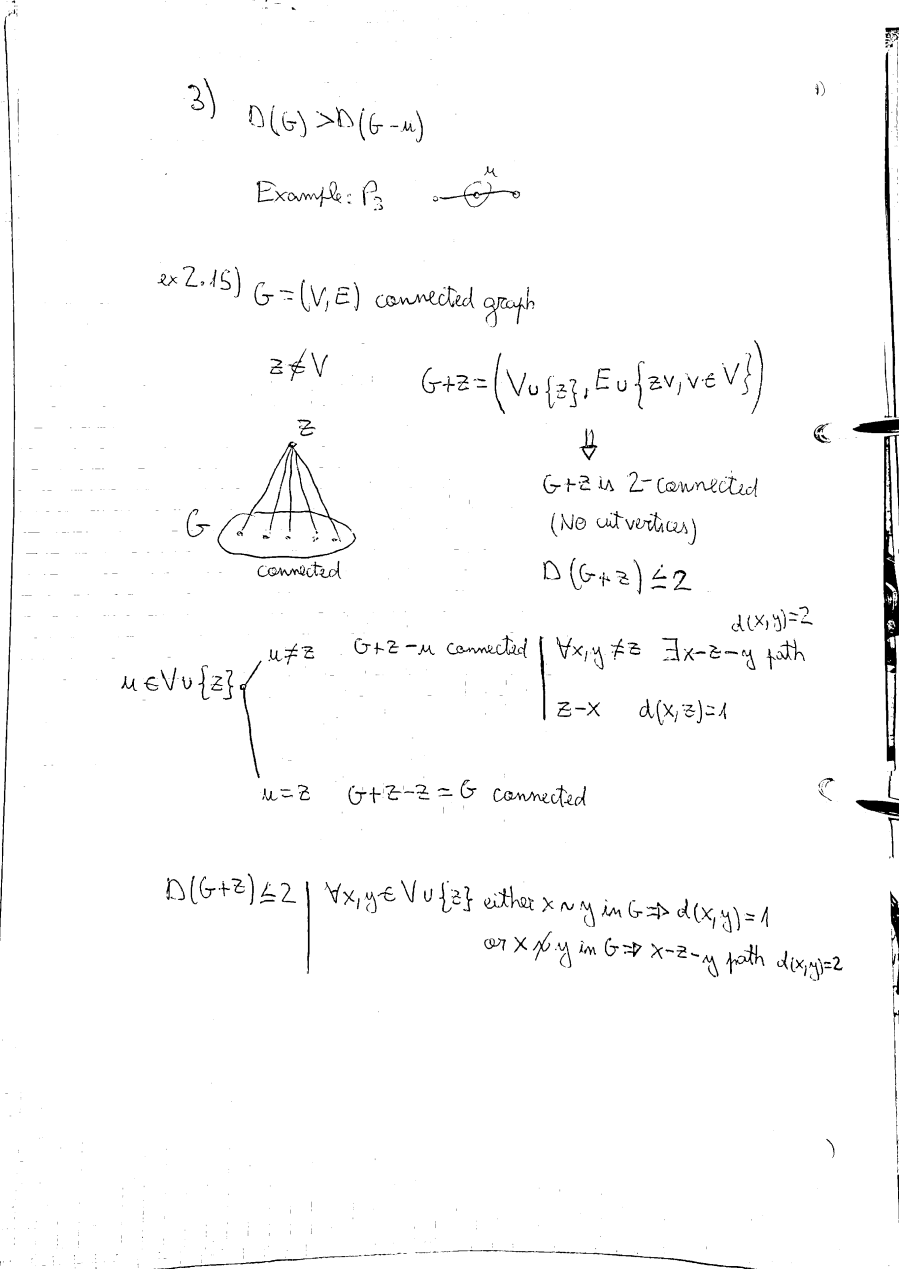 3)
1)
D(G) > D(G-u)
Example: P₃
u
ex 2.15) G = (V, E) connected graph
z ∉ V
G+z = (V ∪ {z}, E ∪ {zv, v ∈ V})
⇓
z
G
connected
G+z is 2-connected
(No cut vertices)
D(G+z) ≤ 2
d(x,y)=2
u ∈ V ∪ {z}
u ≠ z G+z-u connected | ∀x,y ≠ z ∃x-z-y path
z-x d(x,z)=1
u = z G+z-z = G connected
D(G+z) ≤ 2 | ∀x,y ∈ V ∪ {z} either x ~ y in G ⇒ d(x,y) = 1
or x ≁ y in G ⇒ x-z-y path d(x,y)=2